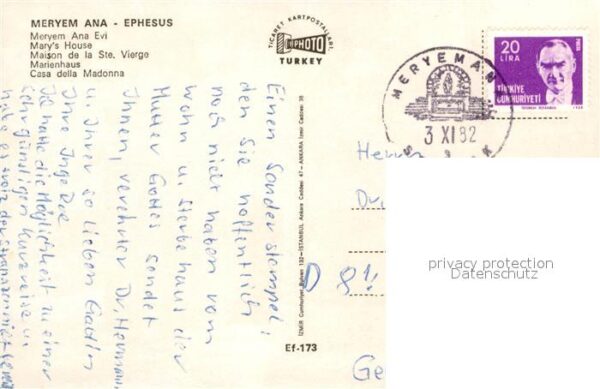 MERYEM ANA - EPHESUS
Meryem Ana Evi
Mary's House
Maison de la Ste. Vierge
Marienhaus
Casa della Madonna
TICARET KARTPOSTALLARI
PHOTO
TURKEY
20
LIRA
TÜRKİYE
CUMHURİYETİ
MERYEMAN
3 XI 92
Einen Sonderstempel,
den Sie hoffentlich
noch nicht haben vom
Wohn u. Sterbehaus der
Mutter Gottes sendet
Ihnen, verehrter Dr. Hermann,
u. Ihrer so lieben Gattin
Ihre Inge
Ich hatte die Möglichkeit zu einer
sehr günstigen Kurzreise u.
habe es trotz der Strapazen
İZMİR Cumhuriyet Bulvarı 132 - İSTANBUL Ankara Caddesi 47 - ANKARA İzmir Caddesi
Ef-173
Herrn
Dr.
D 81
Ge
privacy protection
Datenschutz